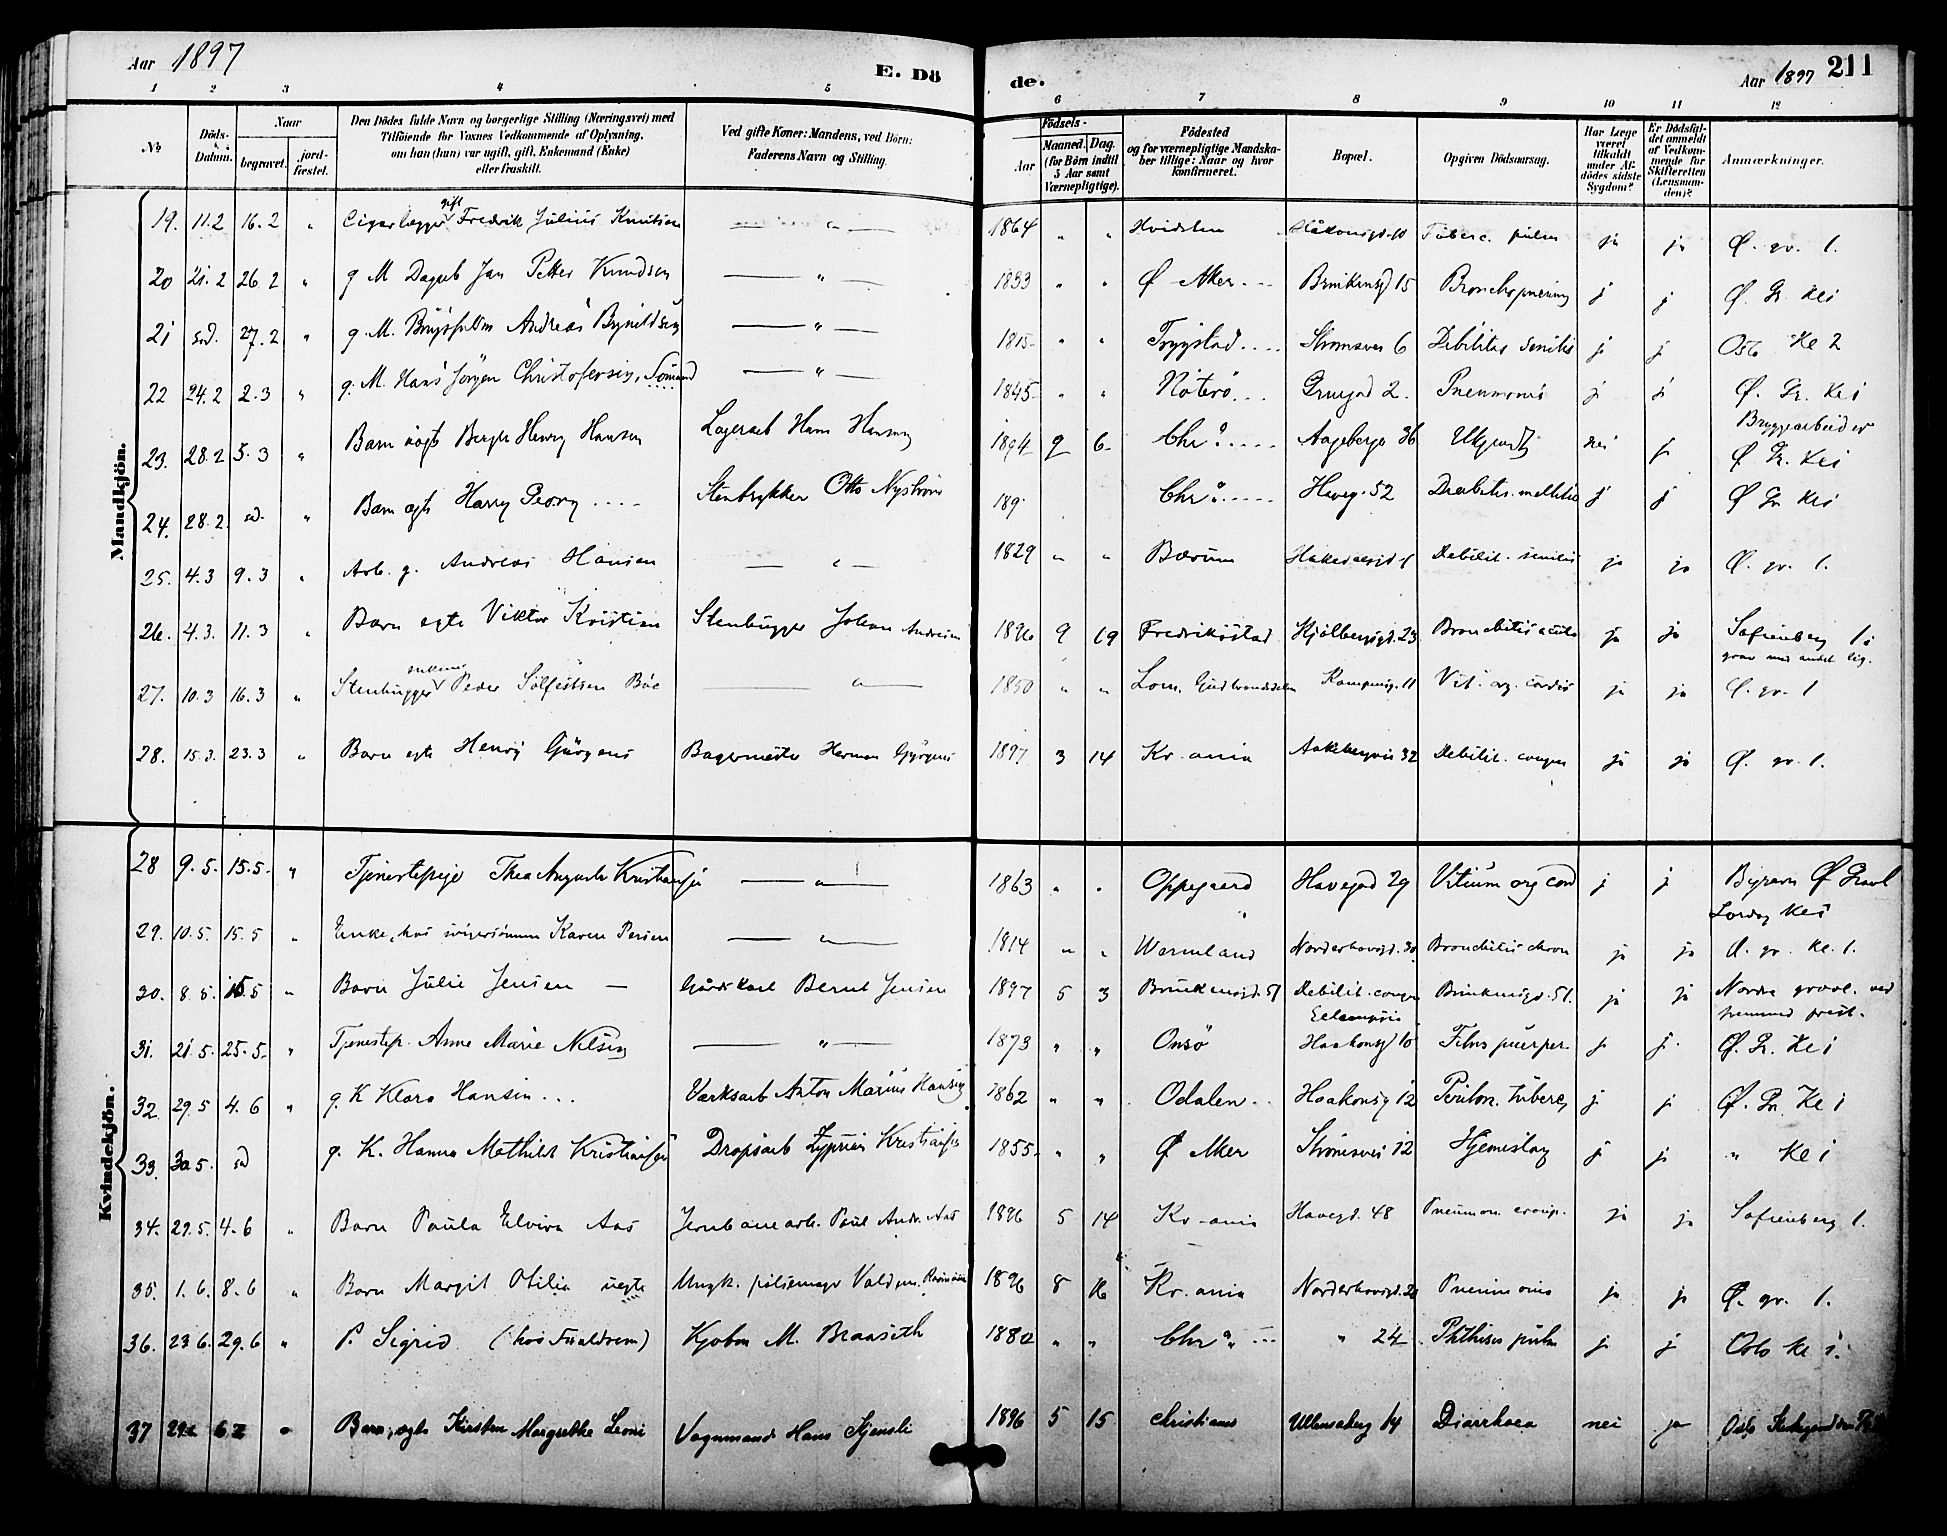 Aar 1897 E. Dö de. Aar 1897 211
1 2 3 4 5 6 7 8 9 10 11 12
No. Döds-Datum. Naar begravet. jord-fæstet. Den Dödes fulde Navn og borgerlige Stilling (Næringsvei) med Tilföiende for Voxnes Vedkommende af Oplysning, om han (hun) var ugift, gift, Enkemand (Enke) eller fraskilt. Ved gifte Koner: Mandens, ved Börn: Faderens Navn og Stilling. Födsels- Aar Maaned. Dag. (for Börn indtil 5 Aar samt Værnepligtige). Födested og for værnepligtige Mandskaber tillige: Naar og hvor konfirmeret. Bopæl. Opgiven Dödsaarsag. Har Læge været tilkaldt under Afdödes sidste Sygdom? Er Dödsfaldet anmeldt af Vedkommende for Skifteretten (Lensmanden)? Anmærkninger.
Mandkjön.
19. 11.2 16.2 " Cigarlægger gift Fredrik Julius Knutsen — " — 1864 " " Hvidsten Håkonsgd. 10 Tuberc. pulm ja ja Ø. gr. 1.
20 21.2 26.2 " g M Dagarb Jan Petter Knudsen — " — 1833 " " Ø Aker Brinkensgd 15 Bronchopneumoni j j Ø. Gr. Kl 1
21 sd. 27.2 " g. M. Andreas — " — 1815 " " Trygstad Strømsvei 6 Debilitas senilis j j Oslo Kl 2
22 24.2 2.3 " g. M. Hans Jörgen Christofersen, Sömand — " — 1845 " " Nöterö Gruegad 2. Pneumoni j j Ø. Gr. Kl 1
23. 28.2 5.3 " Barn uægt Henry Hansen Lagerarb Hans Hansen 1894 9 6 Chr.a Aagebergv 36 Ukjendt nei j Bryggearbeider Ø Gr. Kl 1
24. 28.2 sd. " Barn ægt Harry Georg Stentrykker Otto Nyström 189 Chr.a Haveg. 52 Diabetes mellitus j j Ø Gr Kl 1
25. 4.3 9.3 " Arb. g. Andreas Hansen — " — 1829 " " Bærum Hakedalsgd. 1 Debilit. senilis ja ja Ø. gr. 1.
26. 4.3. 11.3 " Barn egte Viktor Kristian Stenhugger Johan Andresen 1896 9 19 Fredrikstad Kjölbergsgd. 23 Bronchitis acuta ja ja Sofienberg 1 i grav med andet lig.
27. 10.3 16.3 " Stenhugger Peder Sölfestsen Böe — " — 1850 " " Lom, Gudbrandsdalen Kampensg. 11 Vit. org. cordis ja ja Ø. gr. 1
28. 15.3. 23.3 " Barn egte Henry Gürgens Bagermester Herman Gürgens 1897 3 14 Kr.ania Aakebergveien 32 Debilit. congen ja ja Ø. gr. 1.
Kvindekjön.
28 9.5. 15.5. " Tjenestepige Thea Augusta Kristiansen — " — 1863 " " Oppegaard Havegad 29 Vitium org cord j j Ø Gravl Lørdag Kl 1
29. 10.5. 15.5 " Enke, hos svigersönnen Karen Persen — " — 1814 " " Wermland Norderhovsgd. 30 Bronchitis chron ja ja Ø. gr. kl. 1.
30. 8.5. 15.5 " Barn Julie Jensen — Gårdskarl Bernt Jensen 1897 5 3 Brinkensgd. 51 Debilit. congen Eclampsia Brinkensgd. 51. ja ja Nordre gravl. ved fremmed prest.
31. 21.5. 25.5. " Tjenestep. Anne Marie Nilsen — " — 1873 " " Onsö Haakonsgd 10 Febris puerper. j j Ø. Gr. Kl 1
32. 29.5 4.6 " g. K Klara Hansen Værksarb Anton Marius Hansen 1862 " " Odalen Haakonsg 12 Periton. tuberc. j j Ø. Gr. Kl 1
33. 30.5. sd " g. K. Hanna Mathilde Kristiansen Kristiansen 1855 " " Ø Aker Strömsvei 12 Hjerneslag j j " Kl 1
34. 29.5. 4.6 " Barn Paula Elvira Aas Jernbanearb. Paul Andr. Aas 1896 5 14 Kr-ania Havegd. 48 Pneumon. croup. ja ja Sofienberg 1.
35. 1.6. 8.6 " Barn Margit Otilie uegte Ungk. pölsemager Valdem. 1896 8 16 Kr.ania Norderhovsgd. Pneumonia ja ja Ø. gr. 1.
36. 23.6. 29.6 " P. Sigrid Kjøbm M. Braaseth 1882 " " Chr.a " 24 Phthisis pulm j j Oslo Kl 1.
37 " Barn, ægte Kirsten Margrethe Leoni Vognmand Hans Stensli 1896 5 15 Christiania Ulvensberg 14 Diarrhoea nei ja Oslo Kirkegaard